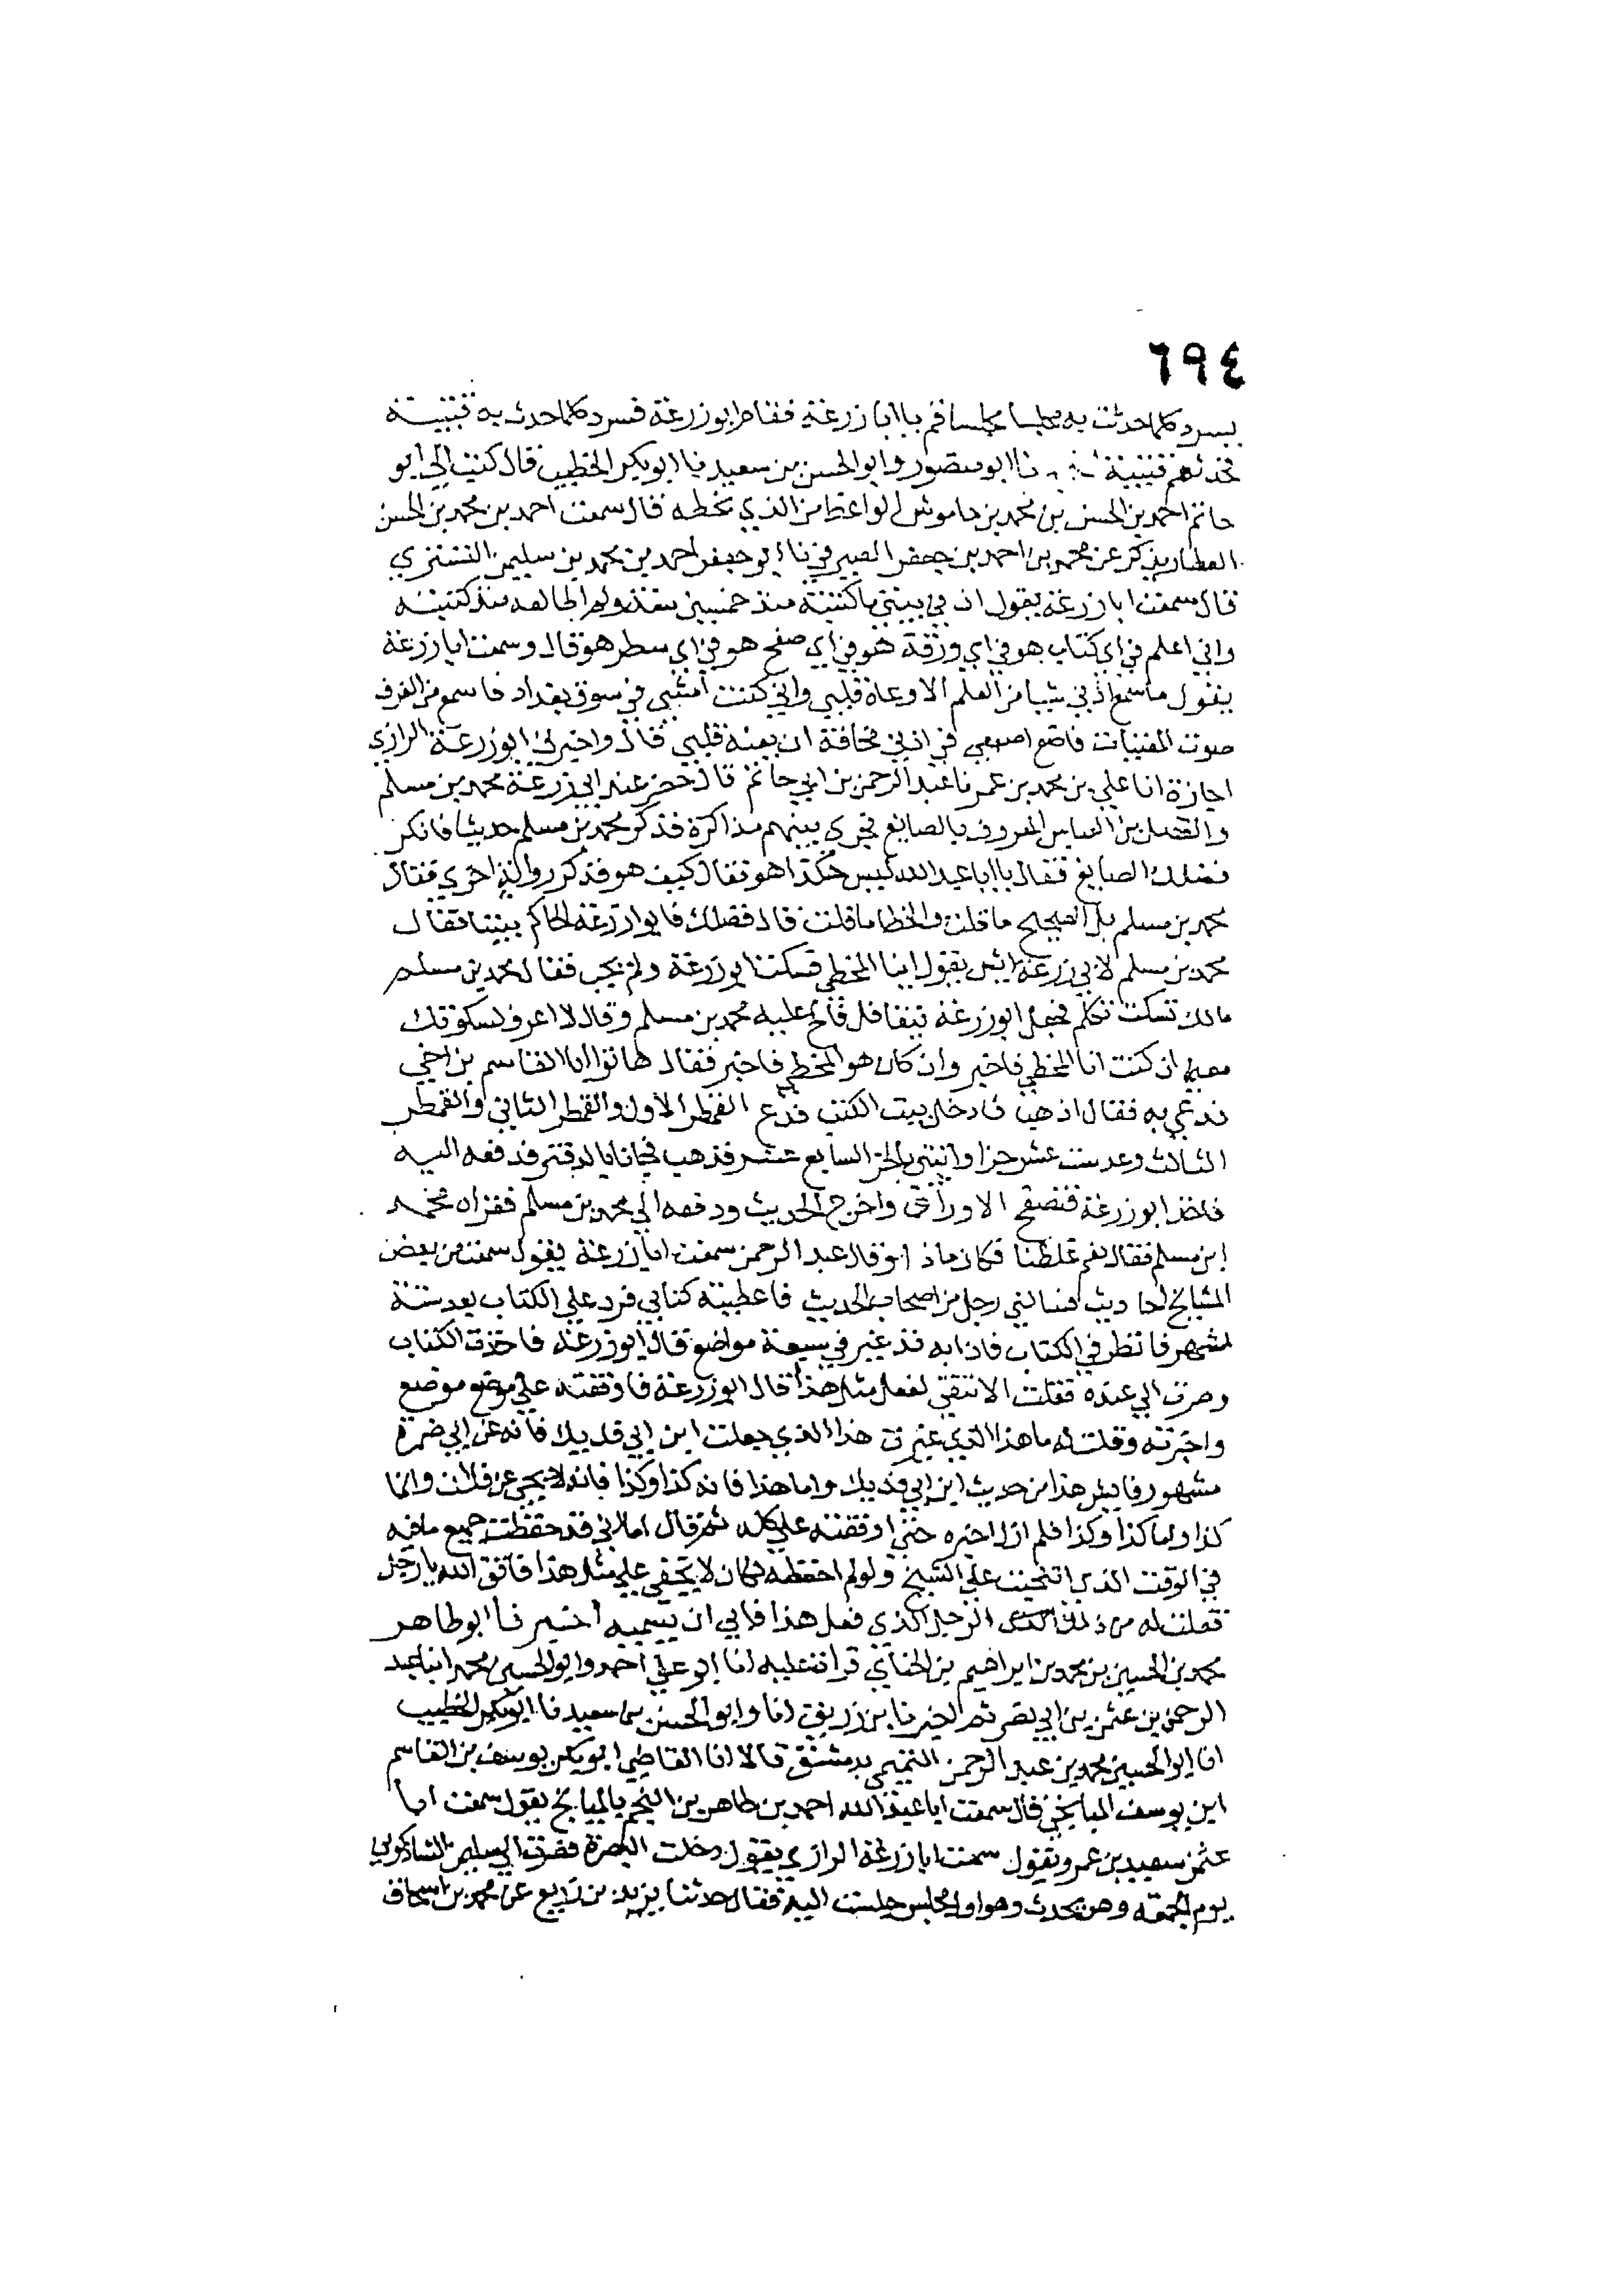 ٦٩٤
يسرد كلما حدثت به مجلسا مجلسا قم يا ابا زرعة فقام ابو زرعة فسرد كلما حدث به قتيبة
فحدثهم قتيبة نا ابو منصور وابو الحسن بن سعيد نا ابو بكر الخطيب قال كتبت الى ابو
حاتم احمد بن الحسن بن محمد بن خاموش الواعظ من الذي بخطه قال سمعت احمد بن محمد بن الحسن
العطار يذكر عن محمد بن احمد بن جعفر الصيرفي نا ابو جعفر احمد بن محمد بن سليمن التستري
قال سمعت ابا زرعة يقول ان في بيتي ما كتبته منذ خمسين سنة ولم اطالعه منذ كتبته
واني اعلم في اي كتاب هو في اي ورقة هو في اي صفح هو في اي سطر هو قال وسمعت ابا زرعة
يقول ما سمع اذني شيا من العلم الا وعاه قلبي واني كنت امشي في سوق بغداد فاسمع من الغرف
صوت المغنيات فاضع اصبعي في اذني مخافة ان يعيه قلبي قال واخبرني ابو زرعة الرازي
اجازة انا علي بن محمد بن عمر نا عبد الرحمن بن ابي حاتم قال حضر عند ابي زرعة محمد بن مسلم
والفضل بن العباس المعروف بالصايغ فجرى بينهم مذاكرة فذكر محمد بن مسلم حديثا فانكر
فضلك الصايغ فقال يا ابا عبد الله ليس هكذا هو فقال كيف هو فذكر رواية اخري فقال
محمد بن مسلم بل الصحيح ما قلت والخطا ما قلت قال فضلك فابو زرعة الحاكم بيننا فقال
محمد بن مسلم لابي زرعة ايش يقول اينا المخطي فسكت ابو زرعة ولم يجب فقال محمد بن مسلم
مالك تسكت تكلم فجعل ابو زرعة يتغافل فالح عليه محمد بن مسلم وقال لا اعرف لسكوتك
معني ان كنت انا المخطي فاخبر وان كان هو المخطي فاخبر فقال هاتوا ابا القاسم بن اخي
فدعي به فقال اذهب فادخل بيت الكتب فدع القمطر الاول والقمطر الثاني والقمطر
الثالث وعد ست عشر جزا وائتني بالجز السابع عشر فذهب فجانا بالدفتر فدفعه اليه
فاخذ ابو زرعة فتصفح الاوراق واخرج الحديث ودفعه الي محمد بن مسلم فقراه محمد
ابن مسلم فقال نعم غلطنا فكان ماذا وقال عبد الرحمن سمعت ابا زرعة يقول سمعت من بعض
المشايخ احاديث فسالني رجل من اصحاب الحديث فاعطيته كتابي فرد علي الكتاب بعد ستة
اشهر فانظر في الكتاب فاذا به قد غير في سبعة مواضع قال ابو زرعة فاخذت الكتاب
وصرت الي عنده فقلت الا تتقي لفعل مثل هذا قال ابو زرعة فاوقفته علي موضع موضع
واخبرته وقلت له ما هذا الذي غيرت هذا الذي جعلت ابن ابي فديك فانه عن ابي ضمرة
مشهور فليس هذا من حديث ابن ابي فديك واما هذا فانه كذا وكذا فانه لا يجي عن فلان وانما
كذا واما كذا وكذا فلم ازل اخبره حتى اوقفته على كله ثم قال اما اني قد حفظت جميع ما فيه
في الوقت الذي انتخبت علي الشيخ ولو لم احفظه لكان لا يخفى علي مثل هذا فاتق الله يا رجل
فقلت له من ذلك الرجل الذي فعل هذا فابي ان يسميه اخبرنا ابو طاهر
محمد بن الحسين بن محمد بن ابراهيم بن الحنائي قراة عليه انا ابو علي احمد وابو الحسين محمد ابنا عبد
الرحمن بن عثمن بن ابي نصر ثم اخبرنا بن زريق انا وابو الحسن بن سعيد نا ابو بكر الخطيب
انا ابو الحسين محمد بن عبد الرحمن التميمي بدمشق قالا انا القاضي ابو بكر يوسف بن القاسم
ابن يوسف الميانجي قال سمعت ابا عبد الله احمد بن طاهر بن النجم بالميانج يقول سمعت ابا
عثمن سعيد بن عمرو يقول سمعت ابا زرعة الرازي يقول دخلت البصرة فصرت الي سليمن الشاذكوني
يوم الجمعة وهو يحدث وهو اول مجلس جلست اليه فقال حدثنا يزيد بن زريع عن محمد بن اسحاق